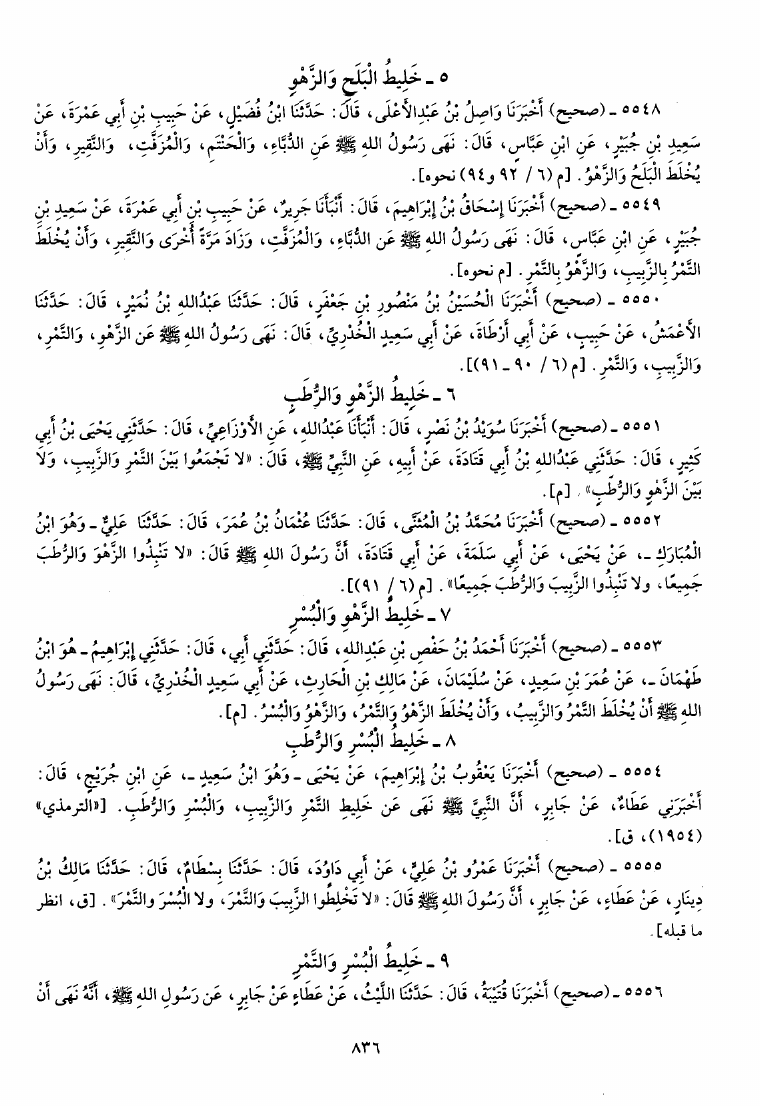 ٥ ـ خَلِيطُ الْبَلَحِ وَالزَّهْوِ
٥٥٤٨ ـ (صحيح) أَخْبَرَنَا وَاصِلُ بْنُ عَبْدِالأَعْلَى، قَالَ: حَدَّثَنَا ابْنُ فُضَيْلٍ، عَنْ حَبِيبِ بْنِ أَبِي عَمْرَةَ، عَنْ
سَعِيدِ بْنِ جُبَيْرٍ، عَنِ ابْنِ عَبَّاسٍ، قَالَ: نَهَى رَسُولُ اللهِ ﷺ عَنِ الدُّبَّاءِ، وَالْحَنْتَمِ، وَالْمُزَفَّتِ، وَالنَّقِيرِ، وَأَنْ
يُخْلَطَ الْبَلَحُ وَالزَّهْوُ. [م (٦ / ٩٢ و٩٤) نحوه].
٥٥٤٩ ـ (صحيح) أَخْبَرَنَا إِسْحَاقُ بْنُ إِبْرَاهِيمَ، قَالَ: أَنْبَأَنَا جَرِيرٌ، عَنْ حَبِيبِ بْنِ أَبِي عَمْرَةَ، عَنْ سَعِيدِ بْنِ
جُبَيْرٍ، عَنِ ابْنِ عَبَّاسٍ، قَالَ: نَهَى رَسُولُ اللهِ ﷺ عَنِ الدُّبَّاءِ، وَالْمُزَفَّتِ، وَزَادَ مَرَّةً أُخْرَى وَالنَّقِيرِ، وَأَنْ يُخْلَطَ
التَّمْرُ بِالزَّبِيبِ، وَالزَّهْوُ بِالتَّمْرِ. [م نحوه].
٥٥٥٠ ـ (صحيح) أَخْبَرَنَا الْحُسَيْنُ بْنُ مَنْصُورِ بْنِ جَعْفَرٍ، قَالَ: حَدَّثَنَا عَبْدُاللهِ بْنُ نُمَيْرٍ، قَالَ: حَدَّثَنَا
الأَعْمَشُ، عَنْ حَبِيبٍ، عَنْ أَبِي أَرْطَاةَ، عَنْ أَبِي سَعِيدٍ الْخُدْرِيِّ، قَالَ: نَهَى رَسُولُ اللهِ ﷺ عَنِ الزَّهْوِ، وَالتَّمْرِ،
وَالزَّبِيبِ، وَالتَّمْرِ. [م (٦ / ٩٠ ـ ٩١)].
٦ ـ خَلِيطُ الزَّهْوِ وَالرُّطَبِ
٥٥٥١ ـ (صحيح) أَخْبَرَنَا سُوَيْدُ بْنُ نَصْرٍ، قَالَ: أَنْبَأَنَا عَبْدُاللهِ، عَنِ الأَوْزَاعِيِّ، قَالَ: حَدَّثَنِي يَحْيَى بْنُ أَبِي
كَثِيرٍ، قَالَ: حَدَّثَنِي عَبْدُاللهِ بْنُ أَبِي قَتَادَةَ، عَنْ أَبِيهِ، عَنِ النَّبِيِّ ﷺ، قَالَ: «لَا تَجْمَعُوا بَيْنَ التَّمْرِ وَالزَّبِيبِ، وَلَا
بَيْنَ الزَّهْوِ وَالرُّطَبِ». [م].
٥٥٥٢ ـ (صحيح) أَخْبَرَنَا مُحَمَّدُ بْنُ الْمُثَنَّى، قَالَ: حَدَّثَنَا عُثْمَانُ بْنُ عُمَرَ، قَالَ: حَدَّثَنَا عَلِيٌّ ـ وَهُوَ ابْنُ
الْمُبَارَكِ ـ، عَنْ يَحْيَى، عَنْ أَبِي سَلَمَةَ، عَنْ أَبِي قَتَادَةَ، أَنَّ رَسُولَ اللهِ ﷺ قَالَ: «لَا تَنْبِذُوا الزَّهْوَ وَالرُّطَبَ
جَمِيعًا، ولا تَنْبِذُوا الزَّبِيبَ وَالرُّطَبَ جَمِيعًا». [م (٦ / ٩١)].
٧ ـ خَلِيطُ الزَّهْوِ وَالْبُسْرِ
٥٥٥٣ ـ (صحيح) أَخْبَرَنَا أَحْمَدُ بْنُ حَفْصِ بْنِ عَبْدِاللهِ، قَالَ: حَدَّثَنِي أَبِي، قَالَ: حَدَّثَنِي إِبْرَاهِيمُ ـ هُوَ ابْنُ
طَهْمَانَ ـ، عَنْ عُمَرَ بْنِ سَعِيدٍ، عَنْ سُلَيْمَانَ، عَنْ مَالِكِ بْنِ الْحَارِثِ، عَنْ أَبِي سَعِيدٍ الْخُدْرِيِّ، قَالَ: نَهَى رَسُولُ
اللهِ ﷺ أَنْ يُخْلَطَ التَّمْرُ وَالزَّبِيبُ، وَأَنْ يُخْلَطَ الزَّهْوُ وَالتَّمْرُ، وَالزَّهْوُ وَالْبُسْرُ. [م].
٨ ـ خَلِيطُ الْبُسْرِ وَالرُّطَبِ
٥٥٥٤ ـ (صحيح) أَخْبَرَنَا يَعْقُوبُ بْنُ إِبْرَاهِيمَ، عَنْ يَحْيَى ـ وَهُوَ ابْنُ سَعِيدٍ ـ، عَنِ ابْنِ جُرَيْجٍ، قَالَ:
أَخْبَرَنِي عَطَاءٌ، عَنْ جَابِرٍ، أَنَّ النَّبِيَّ ﷺ نَهَى عَن خَلِيطِ التَّمْرِ وَالزَّبِيبِ، وَالْبُسْرِ وَالرُّطَبِ. [«الترمذي»
(١٩٥٤)، ق].
٥٥٥٥ ـ (صحيح) أَخْبَرَنَا عَمْرُو بْنُ عَلِيٍّ، عَنْ أَبِي دَاوُدَ، قَالَ: حَدَّثَنَا بِسْطَامٌ، قَالَ: حَدَّثَنَا مَالِكُ بْنُ
دِينَارٍ، عَنْ عَطَاءٍ، عَنْ جَابِرٍ، أَنَّ رَسُولَ اللهِ ﷺ قَالَ: «لَا تَخْلِطُوا الزَّبِيبَ وَالتَّمْرَ، ولا الْبُسْرَ والتَّمْرَ». [ق، انظر
ما قبله].
٩ ـ خَلِيطُ الْبُسْرِ وَالتَّمْرِ
٥٥٥٦ ـ (صحيح) أَخْبَرَنَا قُتَيْبَةُ، قَالَ: حَدَّثَنَا اللَّيْثُ، عَنْ عَطَاءٍ عَنْ جَابِرٍ، عَن رَسُولِ اللهِ ﷺ، أَنَّهُ نَهَى أَنْ
٨٣٦